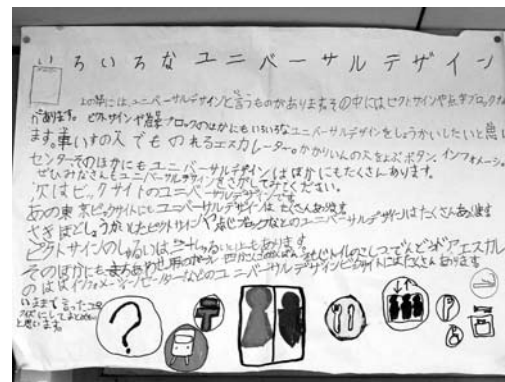 いろいろなユニバーサルデザイン
上の字には、ユニバーサルデザインと言うものがあります。その中にはピクトサインや点字ブロックなど
があります。ピクトサインや点字ブロックのほかにもいろいろなユニバーサルデザインをしょうかいしたいと思い
ます。車いすの人でものれるエスカレーター。かかりいんの人をよぶボタン、インフォメーション
センターそのほかにもユニバーサルデザインはほかにもたくさんあります。
ぜひみなさんもユニバーサルデザインをさがしてみてください。
次はビックサイトのユニバーサルデザインです
あの東京ビックサイトにもユニバーサルデザインはたくさんあります
さきほどしょうかいしたピクトサインや点じブロックなどのユニバーサルデザインはたくさんあります
ピクトサインのしゅるいは 十しゅるい以上もあります
そのほかにも まちあわせ用のボール
のはばインフォメーション などのユニバーサルデザインビックサイトにはたくさんあります
いままで言ったことを
クイズにしてまとめたいと
思います。
?